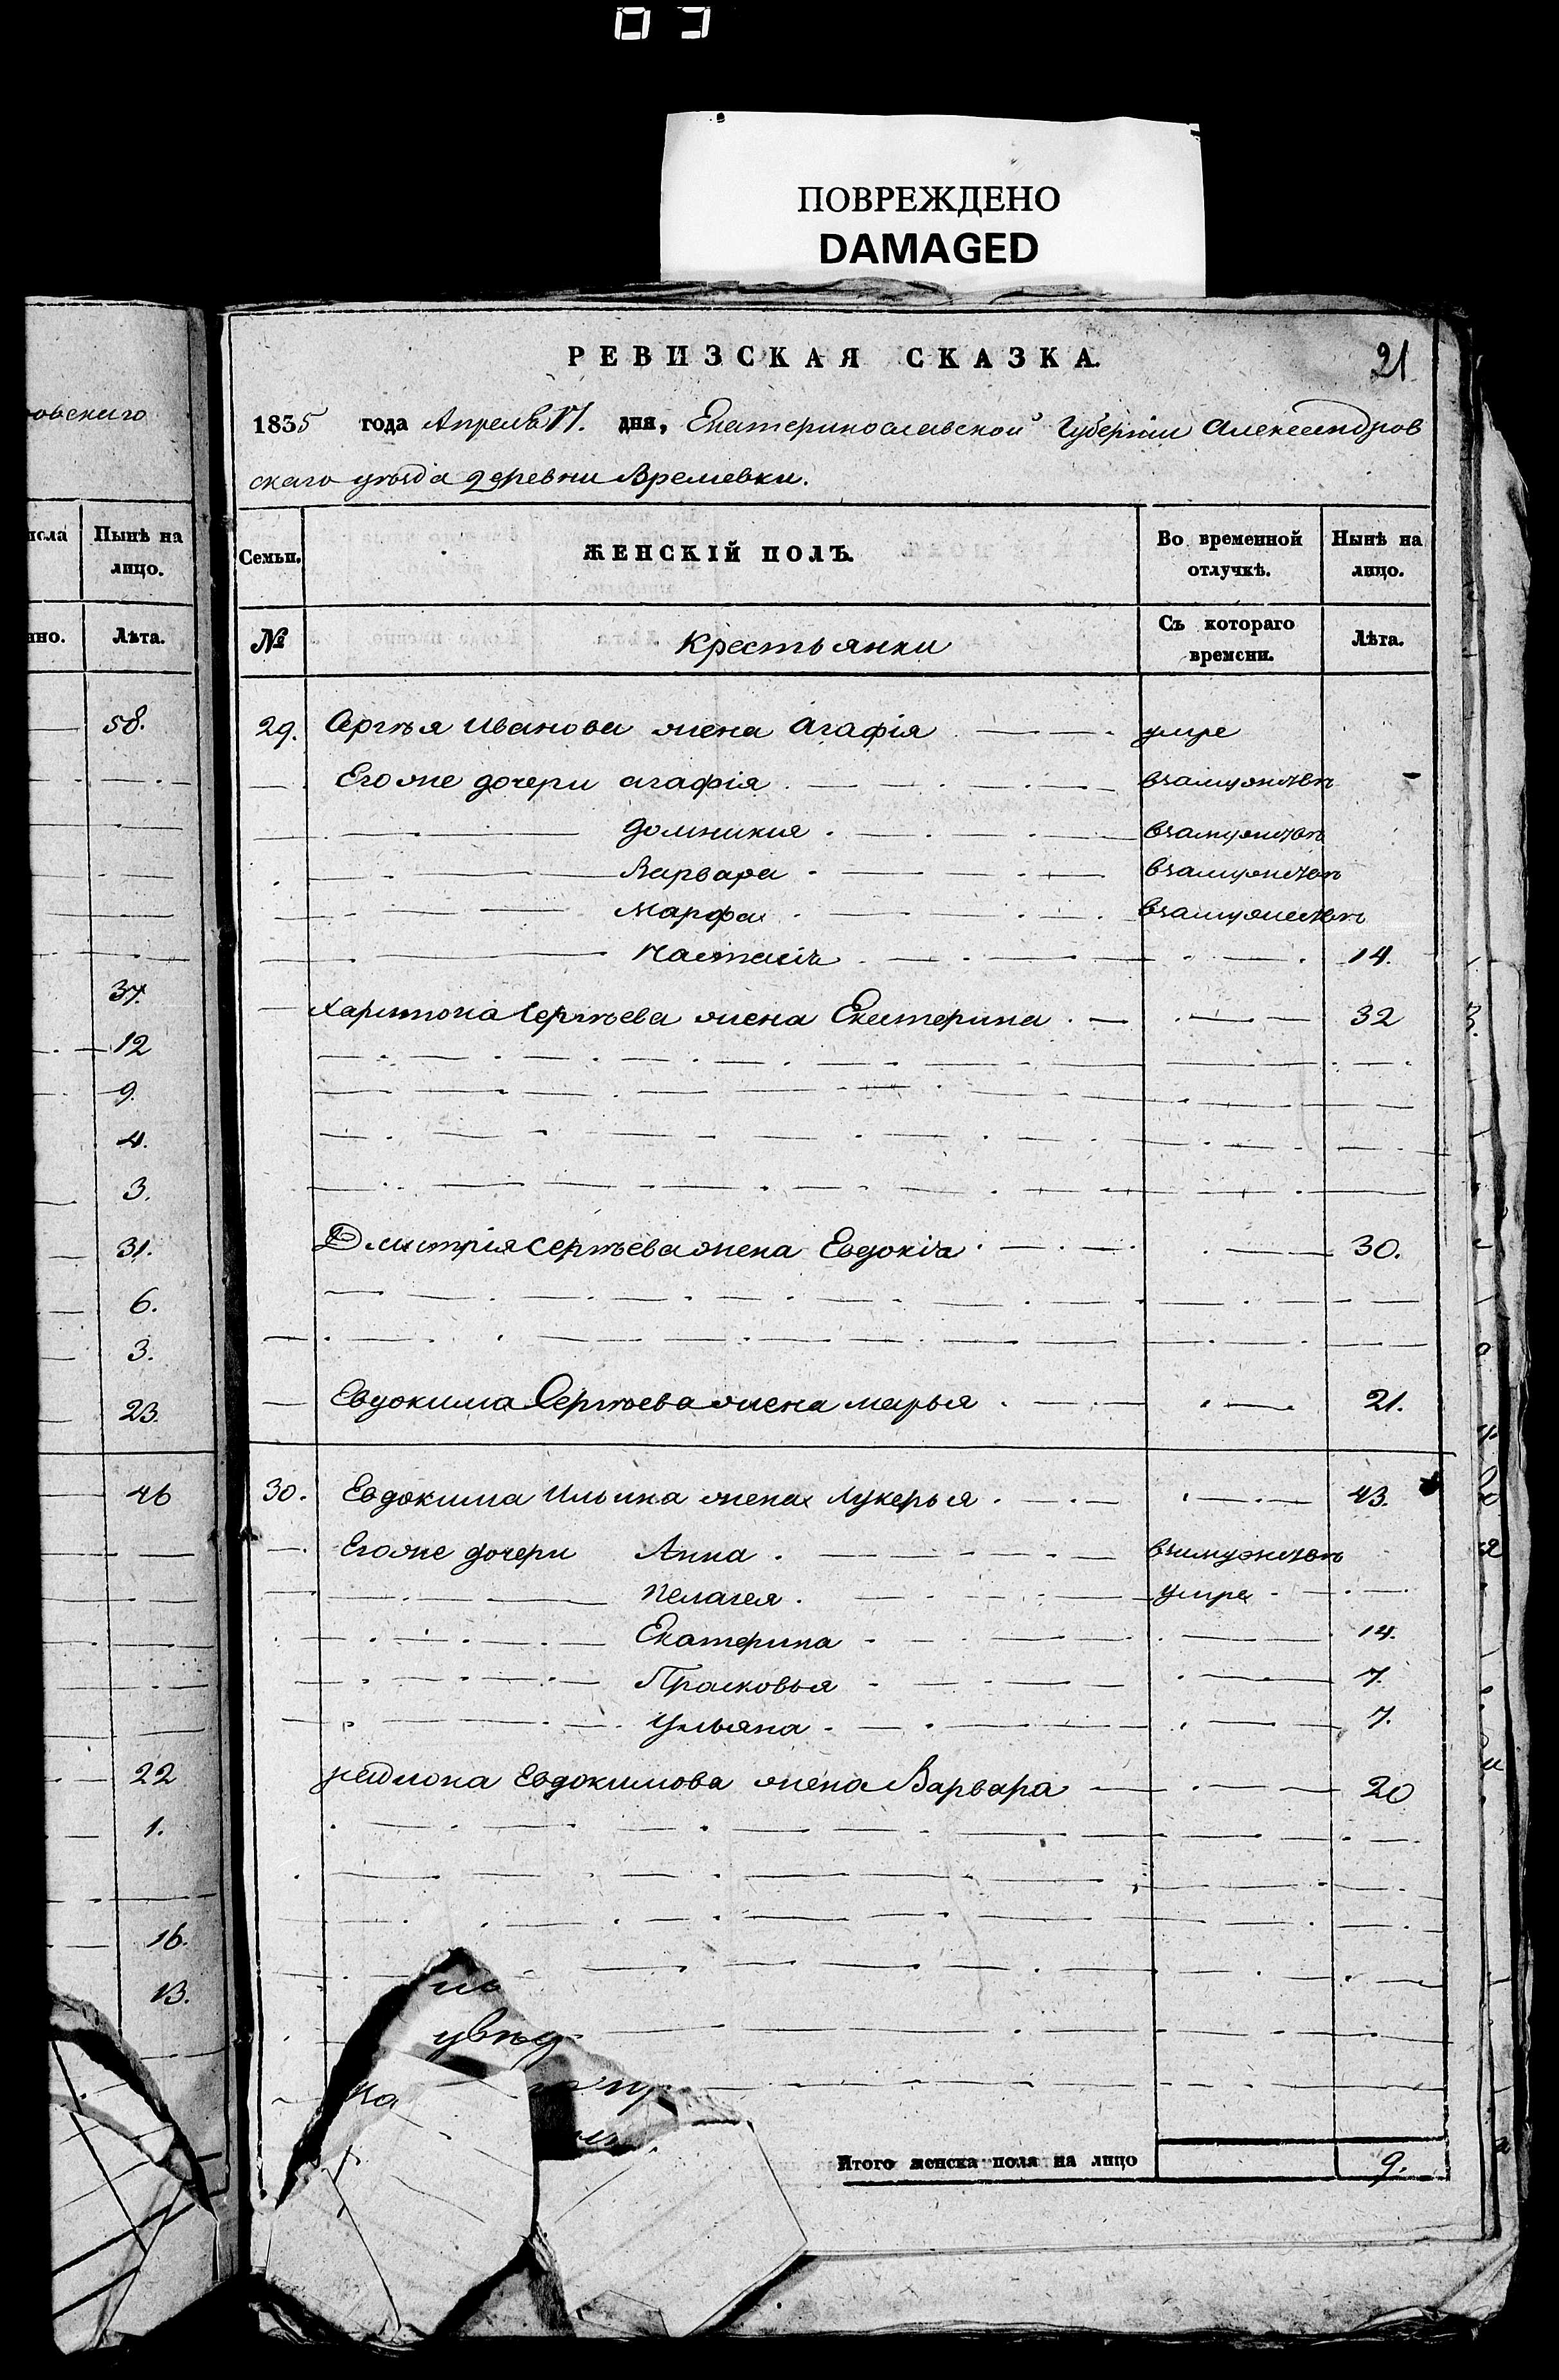 ПОВРЕЖДЕНО
DAMAGED
овскиго
пола Нынѣ на
лицо.
нно. Лѣта.
58.
37.
12
9.
4.
3.
31.
6.
3.
23.
46
22
1.
16.
13.
РЕВИЗСКАЯ СКАЗКА. 21
1835 года Апреля 17. дня, Екатеринославской Губерніи Александров
скаго уѣзда деревни Времевки.
Семьи. ЖЕНСКІЙ ПОЛЪ. Во временной отлучкѣ. Нынѣ на лицо.
№ Крестьянки Съ котораго времени. Лѣта.
29. Сергѣя Иванова жена Агафія умре
Егоже дочери агафія взамужствѣ
домникия взамужствѣ
Варвара взамужствѣ
Марфа взамужествѣ
Настасія 14.
Харитона Сергѣева жена Екатерина 32
Дмитрія Сергѣева жена Евдокія 30.
Евдокима Сергѣева жена марья 21.
30. Евдокима Ильина жена Лукерья 43.
Егоже дочери Анна взамужствѣ
Пелагея. умре
Екатерина 14.
Прасковья 7.
Ульяна 7.
Евдокимова жена Варвара 20
увѣд
ка
Итого женска пола на лицо 9.